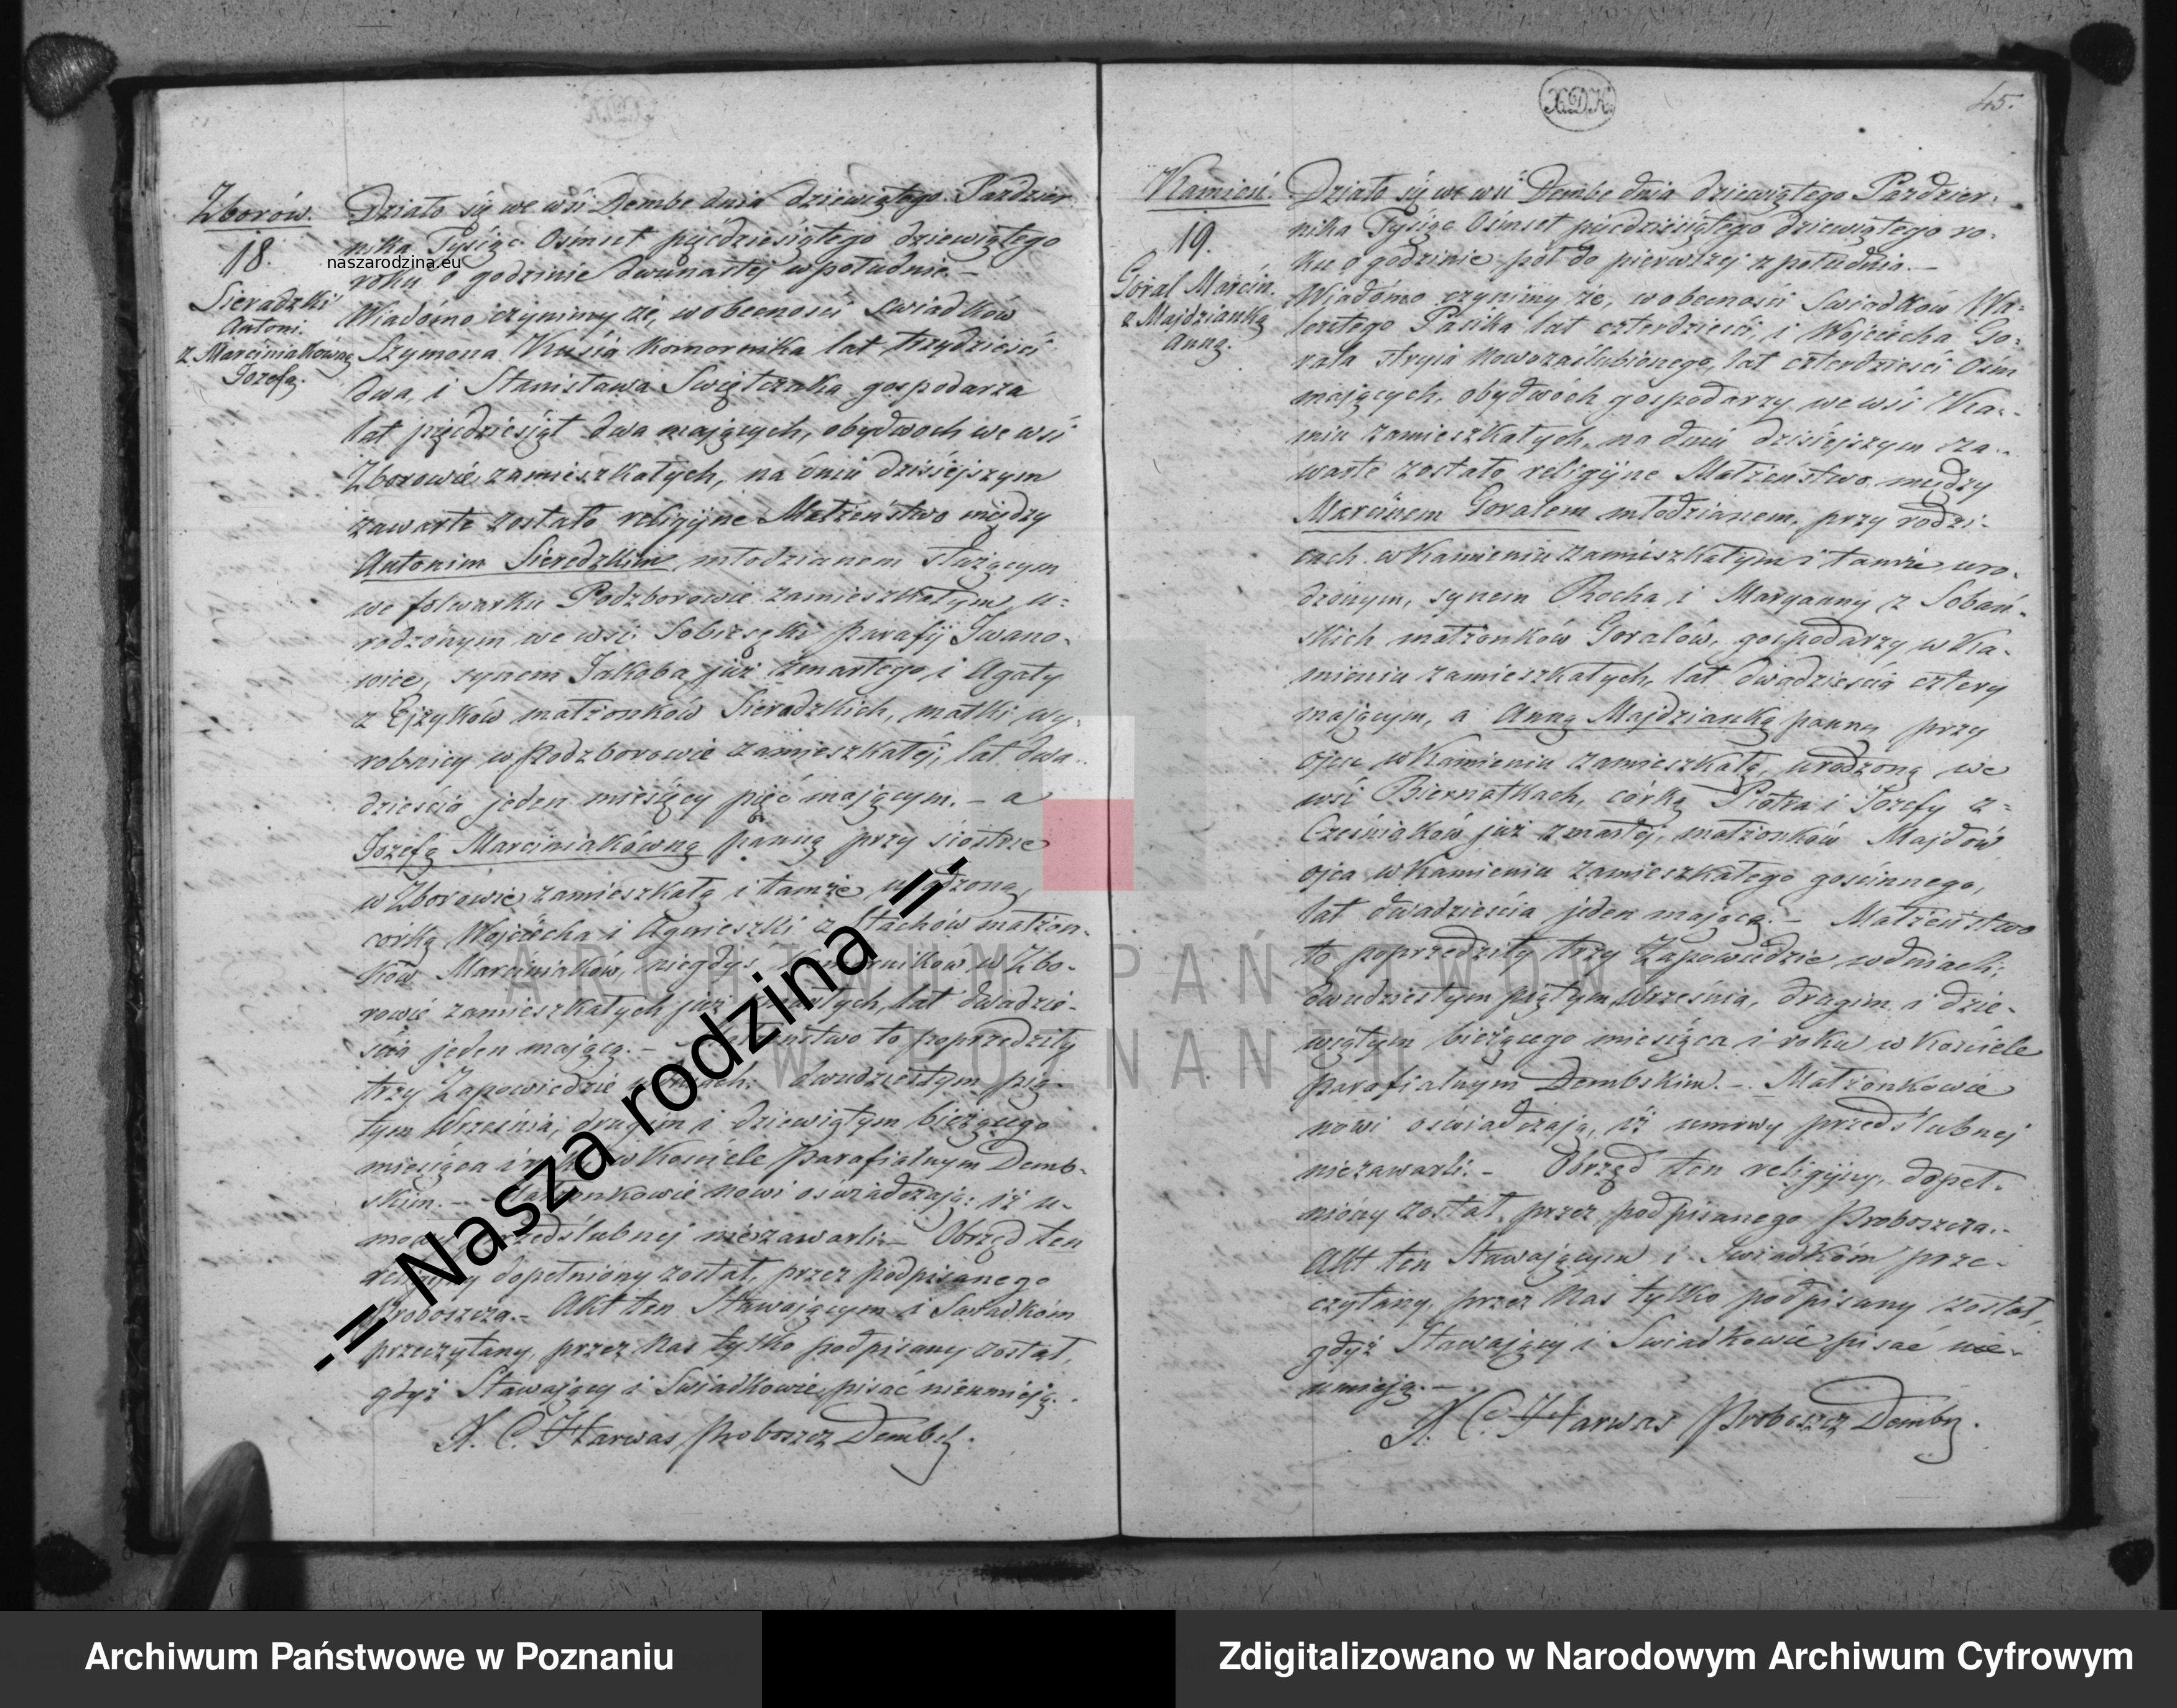 Zborów.
18.
Sieradzki
Antoni.
z Marciniakówną
Jozefą.
Działo się we wsi Dembe dnia dziewiątego Paździer-
nika Tysiąc Ośmset pięćdziesiątego dziewiątego
roku o godzinie dwunastej w południe. –
Wiadomo czynimy że, w obecności Swiadków
Szymona Kusia Komornika lat trzydzieści
dwa, i Stanisława Swiętczaka gospodarza
lat pięćdziesiąt dwa mających, obydwoch we wsi
Zborowie zamieszkałych, na dniu dzisiejszym
zawarte zostało religijne Małżeństwo między
Antonim Sieradzkim młodzianem służącym
we folwarku Podzborowie zamieszkałym, u-
rodzonym we wsi Sobiesęki parafij Iwano-
wice, synem Jakoba już zmarłego i Agaty
z małżonków Sieradzkich, matki wy-
robnicy w Podzborowie zamieszkałéj, lat dwa-
dzieścia jeden miesięcy pięć mającym. – a
Jozefą Marciniakówną panną przy siostrze
w Zborowie zamieszkałą i tamże urodzoną,
córką Wojciecha i Agnieszki z Stachów małżon-
ków Marciniaków, niegdyś Komorników w Zbo-
rowie zamieszkałych już zmarłych, lat dwadzie-
ścia jeden mającą. – Małżeństwo to poprzedziły
trzy Zapowiedzie w dniach: dwudziestym pią-
tym Września, drugim i dziewiątym bieżącego
miesiąca i roku w Kościele Parafialnym Demb-
skim. – Małżonkowie nowi oświadczają: iż u-
mowy przedślubnej niezawarli. – Obrzęd ten
religijny dopełniony został, przez podpisanego
Proboszcza. – Akt ten Stawającym i Swiadkom
przeczytany, przez Nas tylko podpisany został,
gdyż Stawający i Swiadkowie, pisać nieumieją.
X. C. Harwas Proboszcz
naszarodzina.eu
.:= Nasza rodzina =:.
X.D.K.
45.
Kamień.
19.
Goral Marcin.
z Majdzianką
Anną.
Działo się we wsi Dembe dnia dziewiątego Paździer-
nika Tysiąc Ośmset pięćdziesiątego dziewiątego ro-
ku o godzinie pół do pierwszej z południa. –
Wiadomo czynimy że, w obecności Swiadków Wa-
lentego Pasika lat czterdzieści, i Wojciecha Go-
rala stryja Nowozaślubionego, lat czterdzieści Ośm
mających, obydwóch gospodarzy we wsi Ka-
miu zamieszkałych, na dniu dzisiejszym za-
warte zostało religijne Małżeństwo między
Marcinem Goralem młodzianem, przy rodzi-
cach w Kamieniu zamieszkałym i tamże uro-
dzonym, synem Rocha i Maryanny z Sobań-
skich małżonków Goralów, gospodarzy w Ka-
mieniu zamieszkałych, lat dwadzieścia cztery
mającym, a Anną Majdzianką panną przy
ojcu w Kamieniu zamieszkałą, urodzoną we
wsi Biernatkach, córką Piotra i Jozefy z
Cześniaków już zmarłej, małżonków Majdów
ojca w Kamieniu zamieszkałego gościnnego,
lat dwadzieścia jeden mającą. – Małżeństwo
to poprzedziły trzy Zapowiedzie w dniach:
dwudziestym piątym Września, drugim i dzie-
wiątym bieżącego miesiąca i roku w Kościele
parafialnym Dembskim. – Małżonkowie
nowi oświadczają, iż umowy przedślubnej
niezawarli. – Obrzęd ten religijny, dopeł-
niony został przez podpisanego Proboszcza. –
Akt ten Stawającym i Swiadkom prze-
czytany, przez Nas tylko podpisany został,
gdyż Stawający i Swiadkowie pisać nie-
umieją. –
X. C. Harwas Proboszcz
ARCHIWUM PAŃSTWOWE
W POZNANIU
Archiwum Państwowe w Poznaniu
Zdigitalizowano w Narodowym Archiwum Cyfrowym